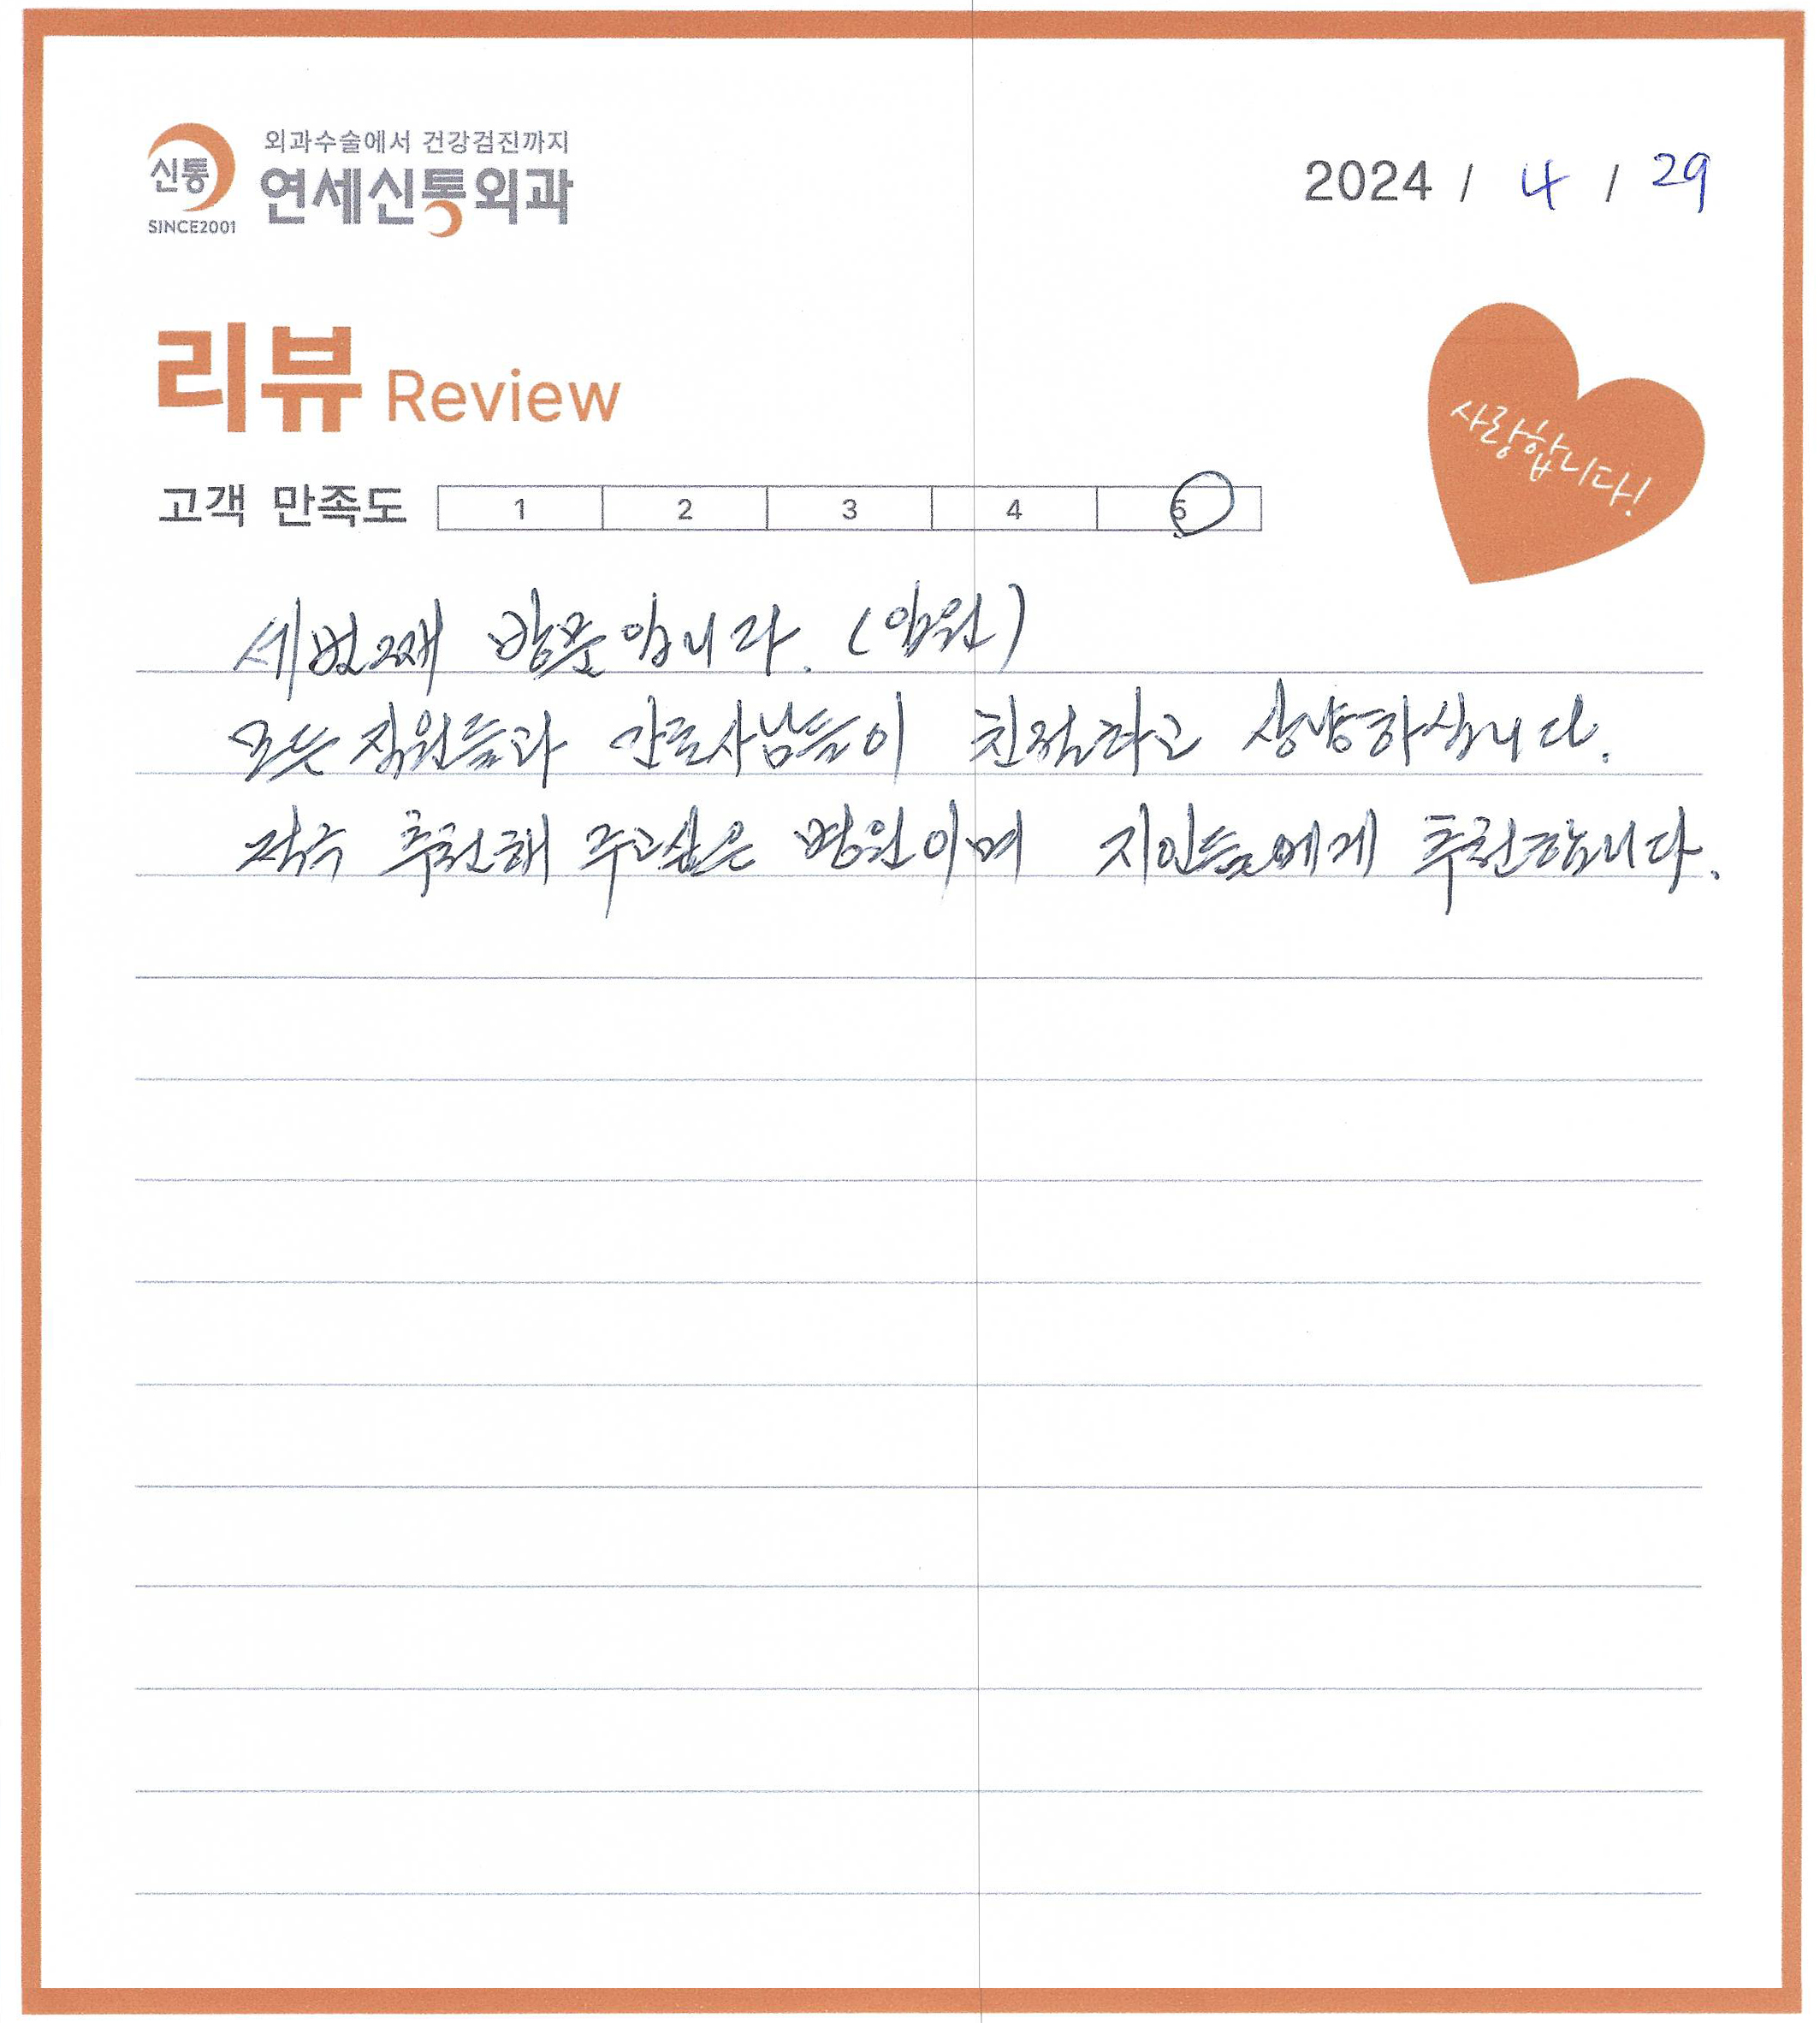 외과수술에서 건강검진까지
신통 연세신통외과
SINCE2001
2024 / 4 / 29
리뷰 Review
사랑합니다!
고객 만족도 1 2 3 4 5
세번째 방문입니다. (입원)
모든 직원들과 간호사님들이 친절하고 상냥하십니다.
적극 추천해 주고싶은 병원이며 지인들에게 추천합니다.